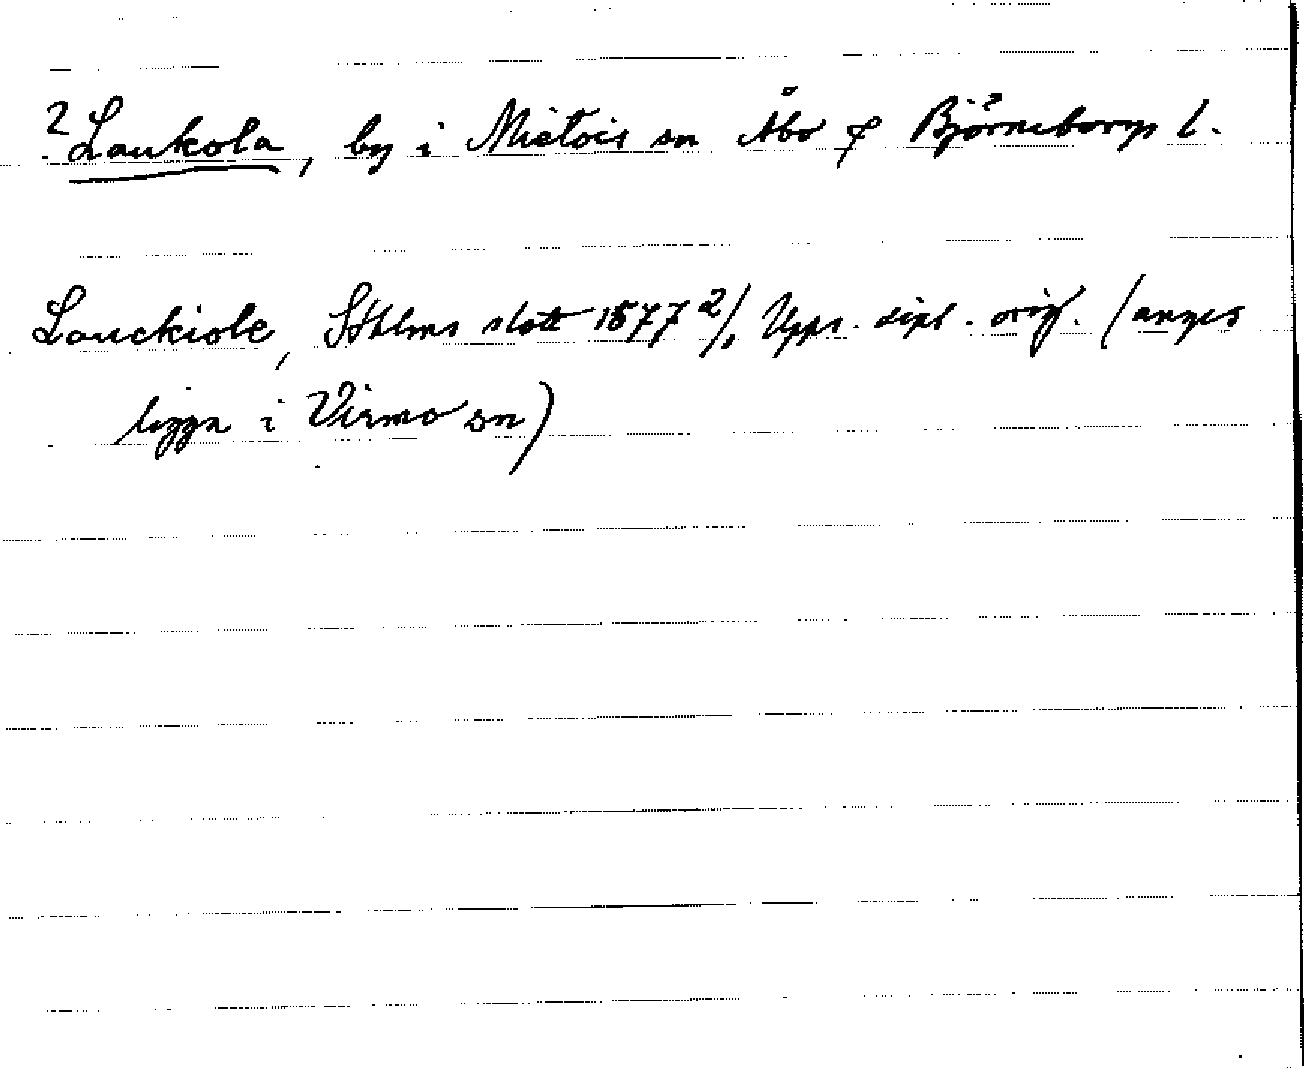 ? Laukola, by i Mietois sn Åbo o Björneborgs l.
Lauckiole, Sthlms slott 1577 2/1, Upps. dipl. orig. (anges
ligga i Virmo sn)